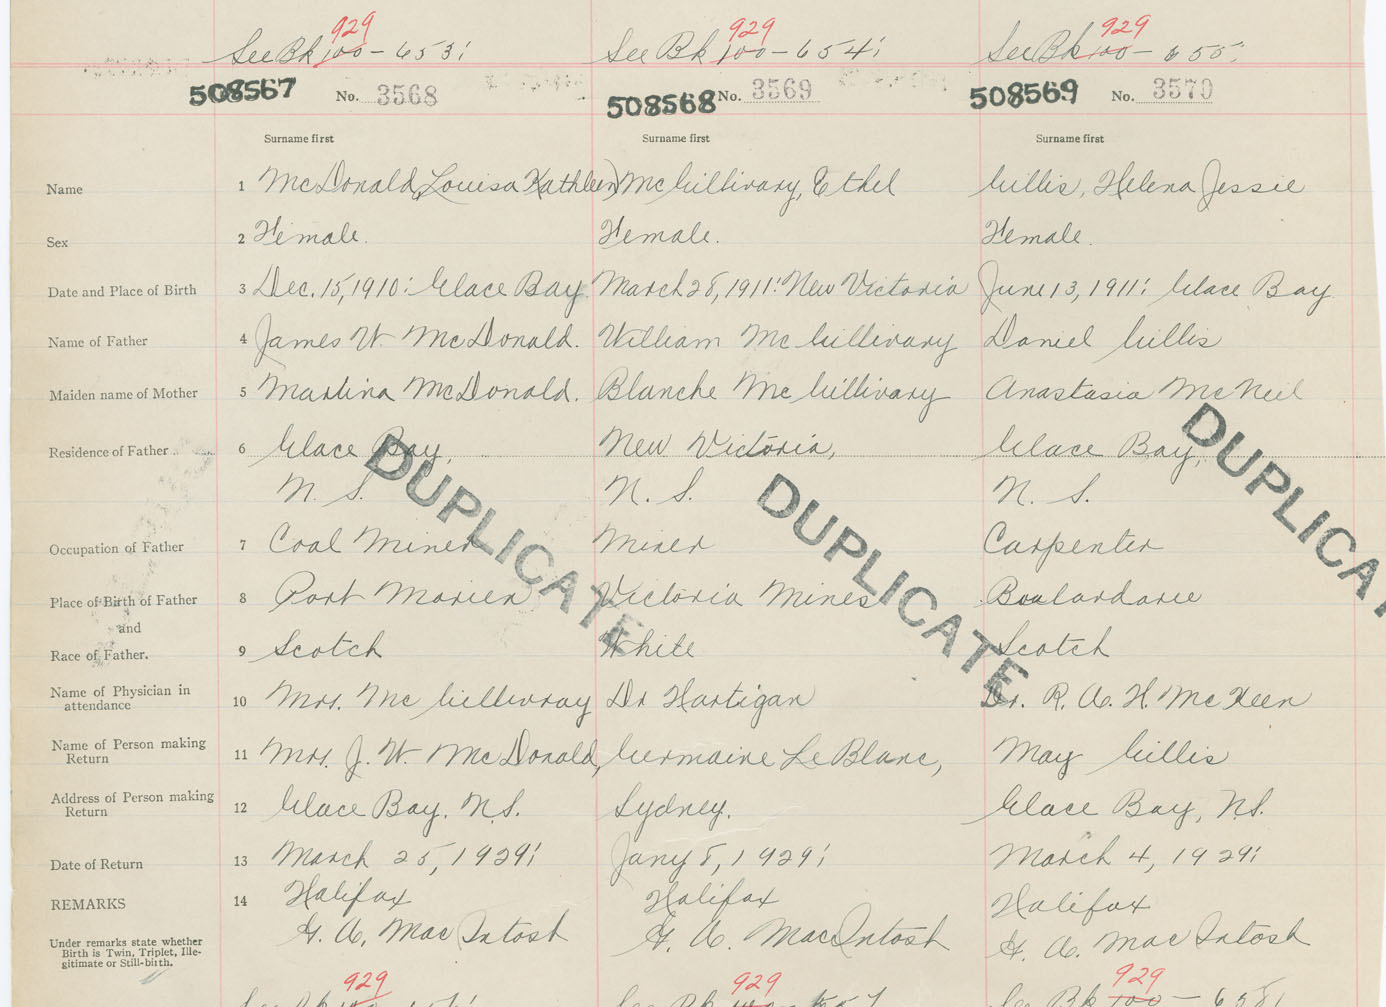 929 929 929
See Bk 100 - 653; See Bk 100 - 654; See Bk 100 - 655;
508567 No. 3568 508568 No. 3569 508569 No. 3570
Surname first Surname first Surname first
Name 1 McDonald, Louisa Kathleen) McGillivary, Ethel Gillis, Helena Jessie
Sex 2 Female. Female. Female.
Date and Place of Birth 3 Dec. 15, 1910: Glace Bay. March 28, 1911: New Victoria June 13, 1911: Glace Bay
Name of Father 4 James W. McDonald. William McGillivary Daniel Gillis
Maiden name of Mother 5 Martina McDonald. Blanche McGillivary Anastasia McNeil
Residence of Father 6 Glace Bay, New Victoria, Glace Bay,
N. S. N. S. N. S.
DUPLICATE DUPLICATE DUPLICATE
Occupation of Father 7 Coal Miner Miner Carpenter
Place of Birth of Father 8 Port Morien Victoria Mines Boulardarie
and
Race of Father. 9 Scotch White Scotch
Name of Physician in
attendance 10 Mrs. McGillivray Dr Hartigan Dr. R. A. H. McKeen
Name of Person making
Return 11 Mrs. J. W. McDonald, Germaine LeBlanc, May Gillis
Address of Person making
Return 12 Glace Bay, N.S. Sydney. Glace Bay, N.S.
Date of Return 13 March 25, 1929; Jany 8, 1929; March 4, 1929;
REMARKS 14 Halifax Halifax Halifax
G. A. MacIntosh G. A. MacIntosh G. A. MacIntosh
Under remarks state whether
Birth is Twin, Triplet, Ille-
gitimate or Still-birth.
929 929 929
See Bk 100 - 656; See Bk 100 - 657 See Bk 100 - 658;